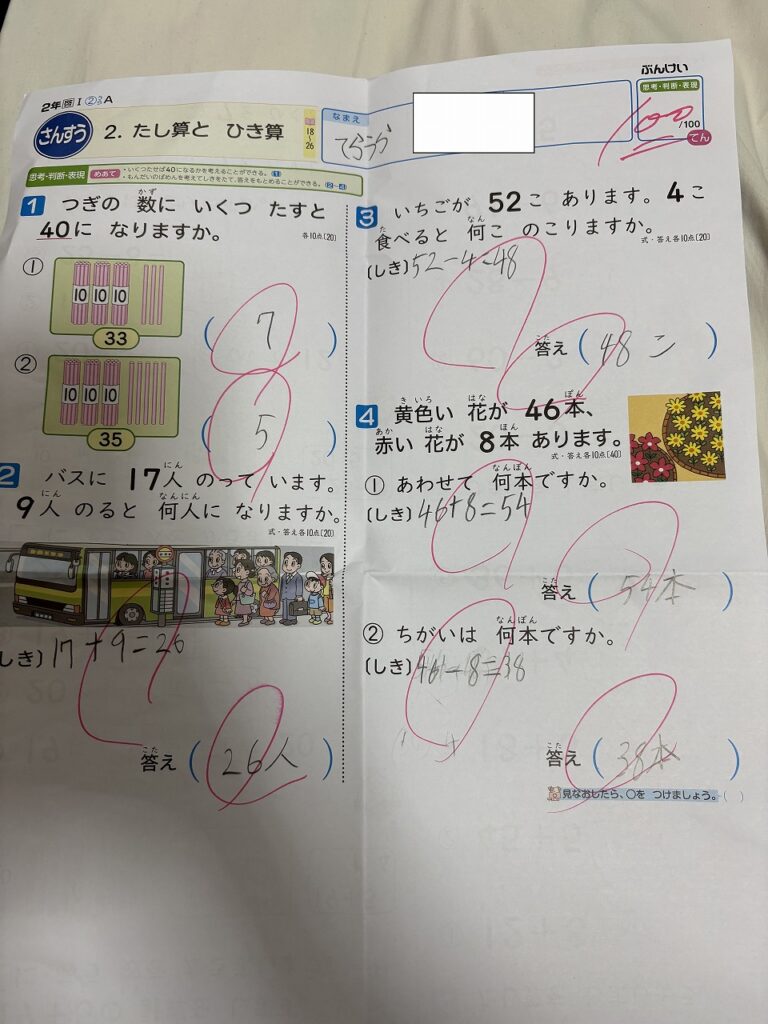 2年 啓 Ⅰ ② A
ぶんけい
さんすう
2. たし算と ひき算
18~26
なまえ
思考・判断・表現
100
/100
てん
思考・判断・表現 めあて
・いくつたせば40になるかを考えることができる。(1)
・もんだいのばめんを考えてしきをたて、答えをもとめることができる。(2~4)
1 つぎの 数に いくつ たすと
かず
40に なりますか。
各10点(20)
①
10 10 10
33
( 7 )
②
10 10 10
35
( 5 )
2 バスに 17人 のって います。
にん
9人 のると 何人に なりますか。
にん なんにん
式・答え各10点(20)
しき) 17+9=26
答え ( 26人 )
こた
3 いちごが 52こ あります。4こ
食べると 何こ のこりますか。
た なん
式・答え各10点(20)
(しき) 52-4=48
答え ( 48こ )
こた
4 黄色い 花が 46本、
きいろ はな ぽん
赤い 花が 8本 あります。
あか はな ほん
式・答え各10点(40)
① あわせて 何本ですか。
なんぼん
(しき) 46+8=54
答え ( 54本 )
こた
② ちがいは 何本ですか。
なんぼん
(しき) 46-8=38
答え ( 38本 )
こた
見なおしたら、○を つけましょう。( )